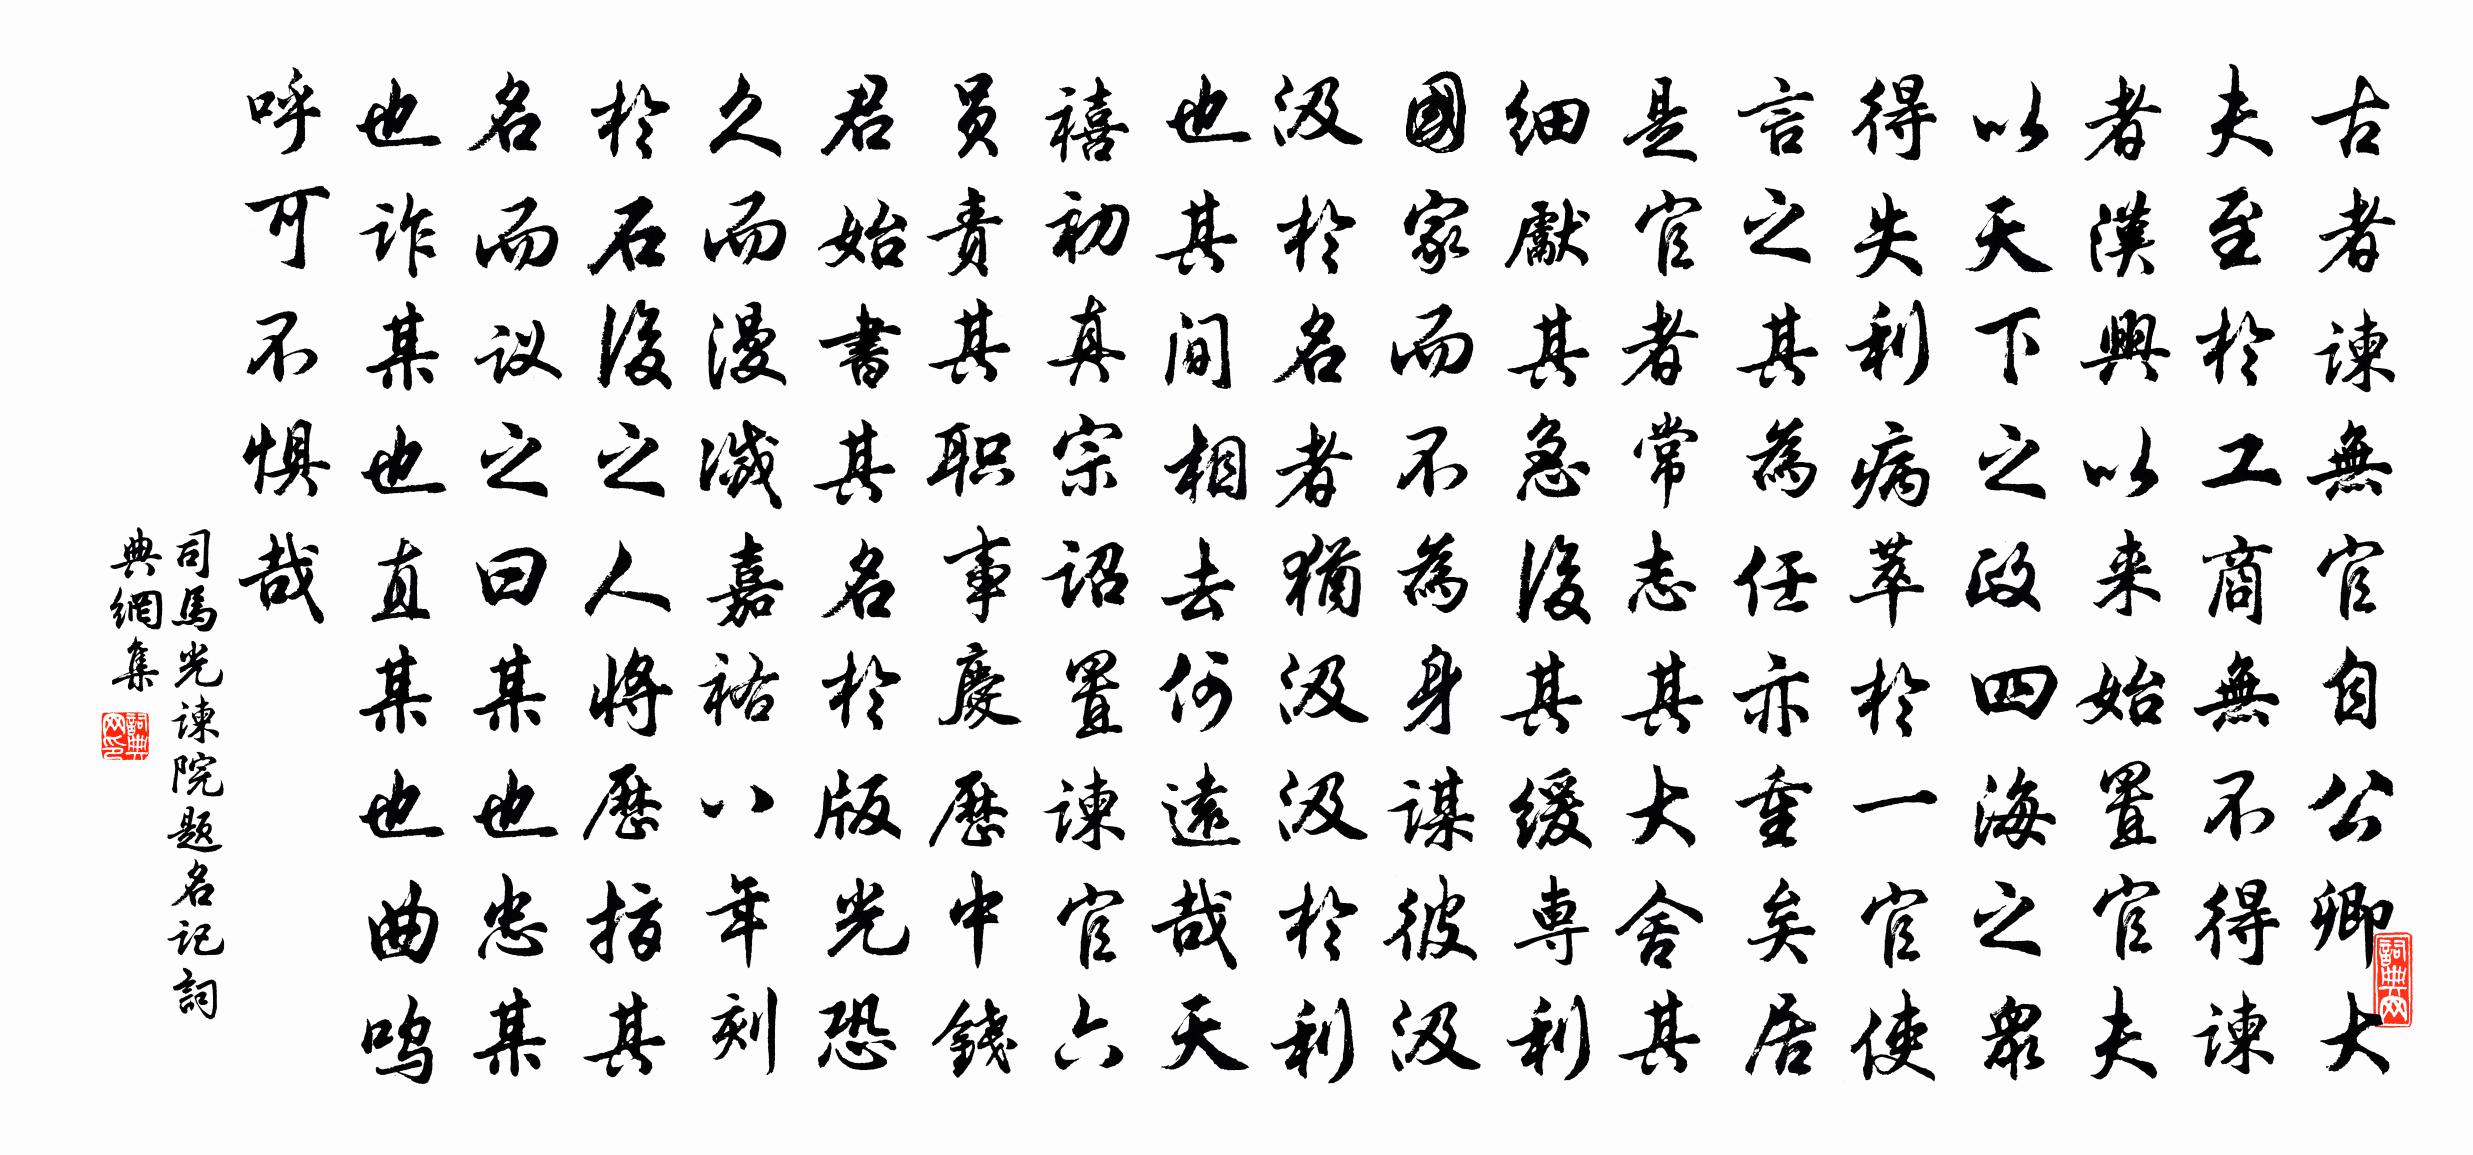 古者諫無官自公卿大
夫至於工商無不得諫
者漢興以来始置官夫
以天下之政四海之衆
得失利病萃於一官使
言之其為任亦重矣居
是官者常志其大舍其
細獻其急後其缓専利
國家而不為身謀彼汲
汲於名者猶汲汲於利
也其间相去何遠哉天
禧初真宗詔置諫官六
员责其职事慶歷中錢
君始書其名於版光恐
久而漫滅嘉祐八年刻
於石後之人将歷指其
名而议之曰某也忠某
也诈某也直某也曲呜
呼可不惧哉
司馬光諫院题名记詞
典網集
詞典网
詞典网印